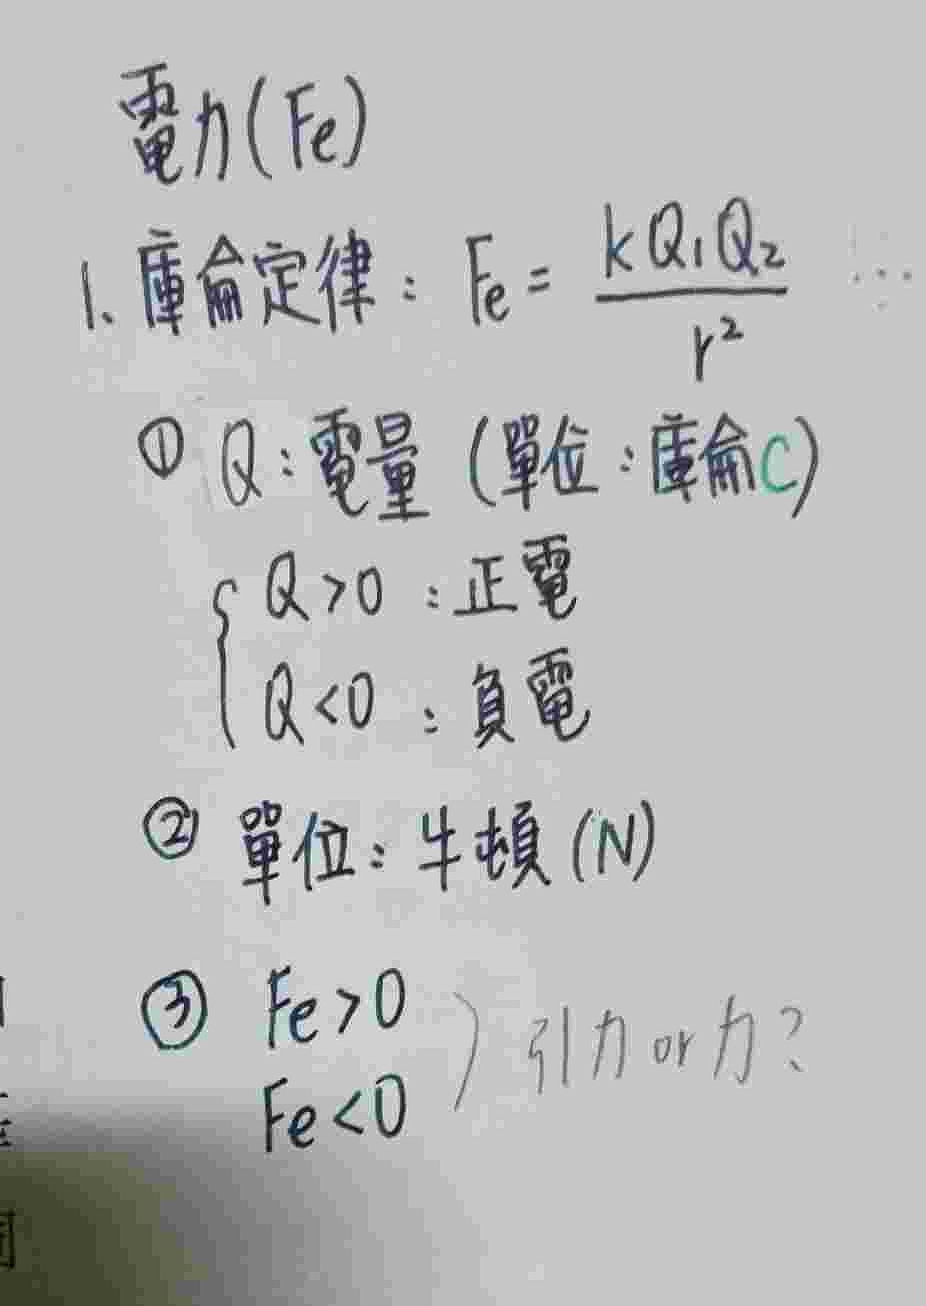 電力(Fe)
1、庫侖定律: Fe = kQ₁Q₂ / r²
① Q:電量 (單位:庫侖C)
{ Q>0 :正電
Q<0 :負電
② 單位:牛頓(N)
③ Fe>0
Fe<0 ) 引力 or 力?